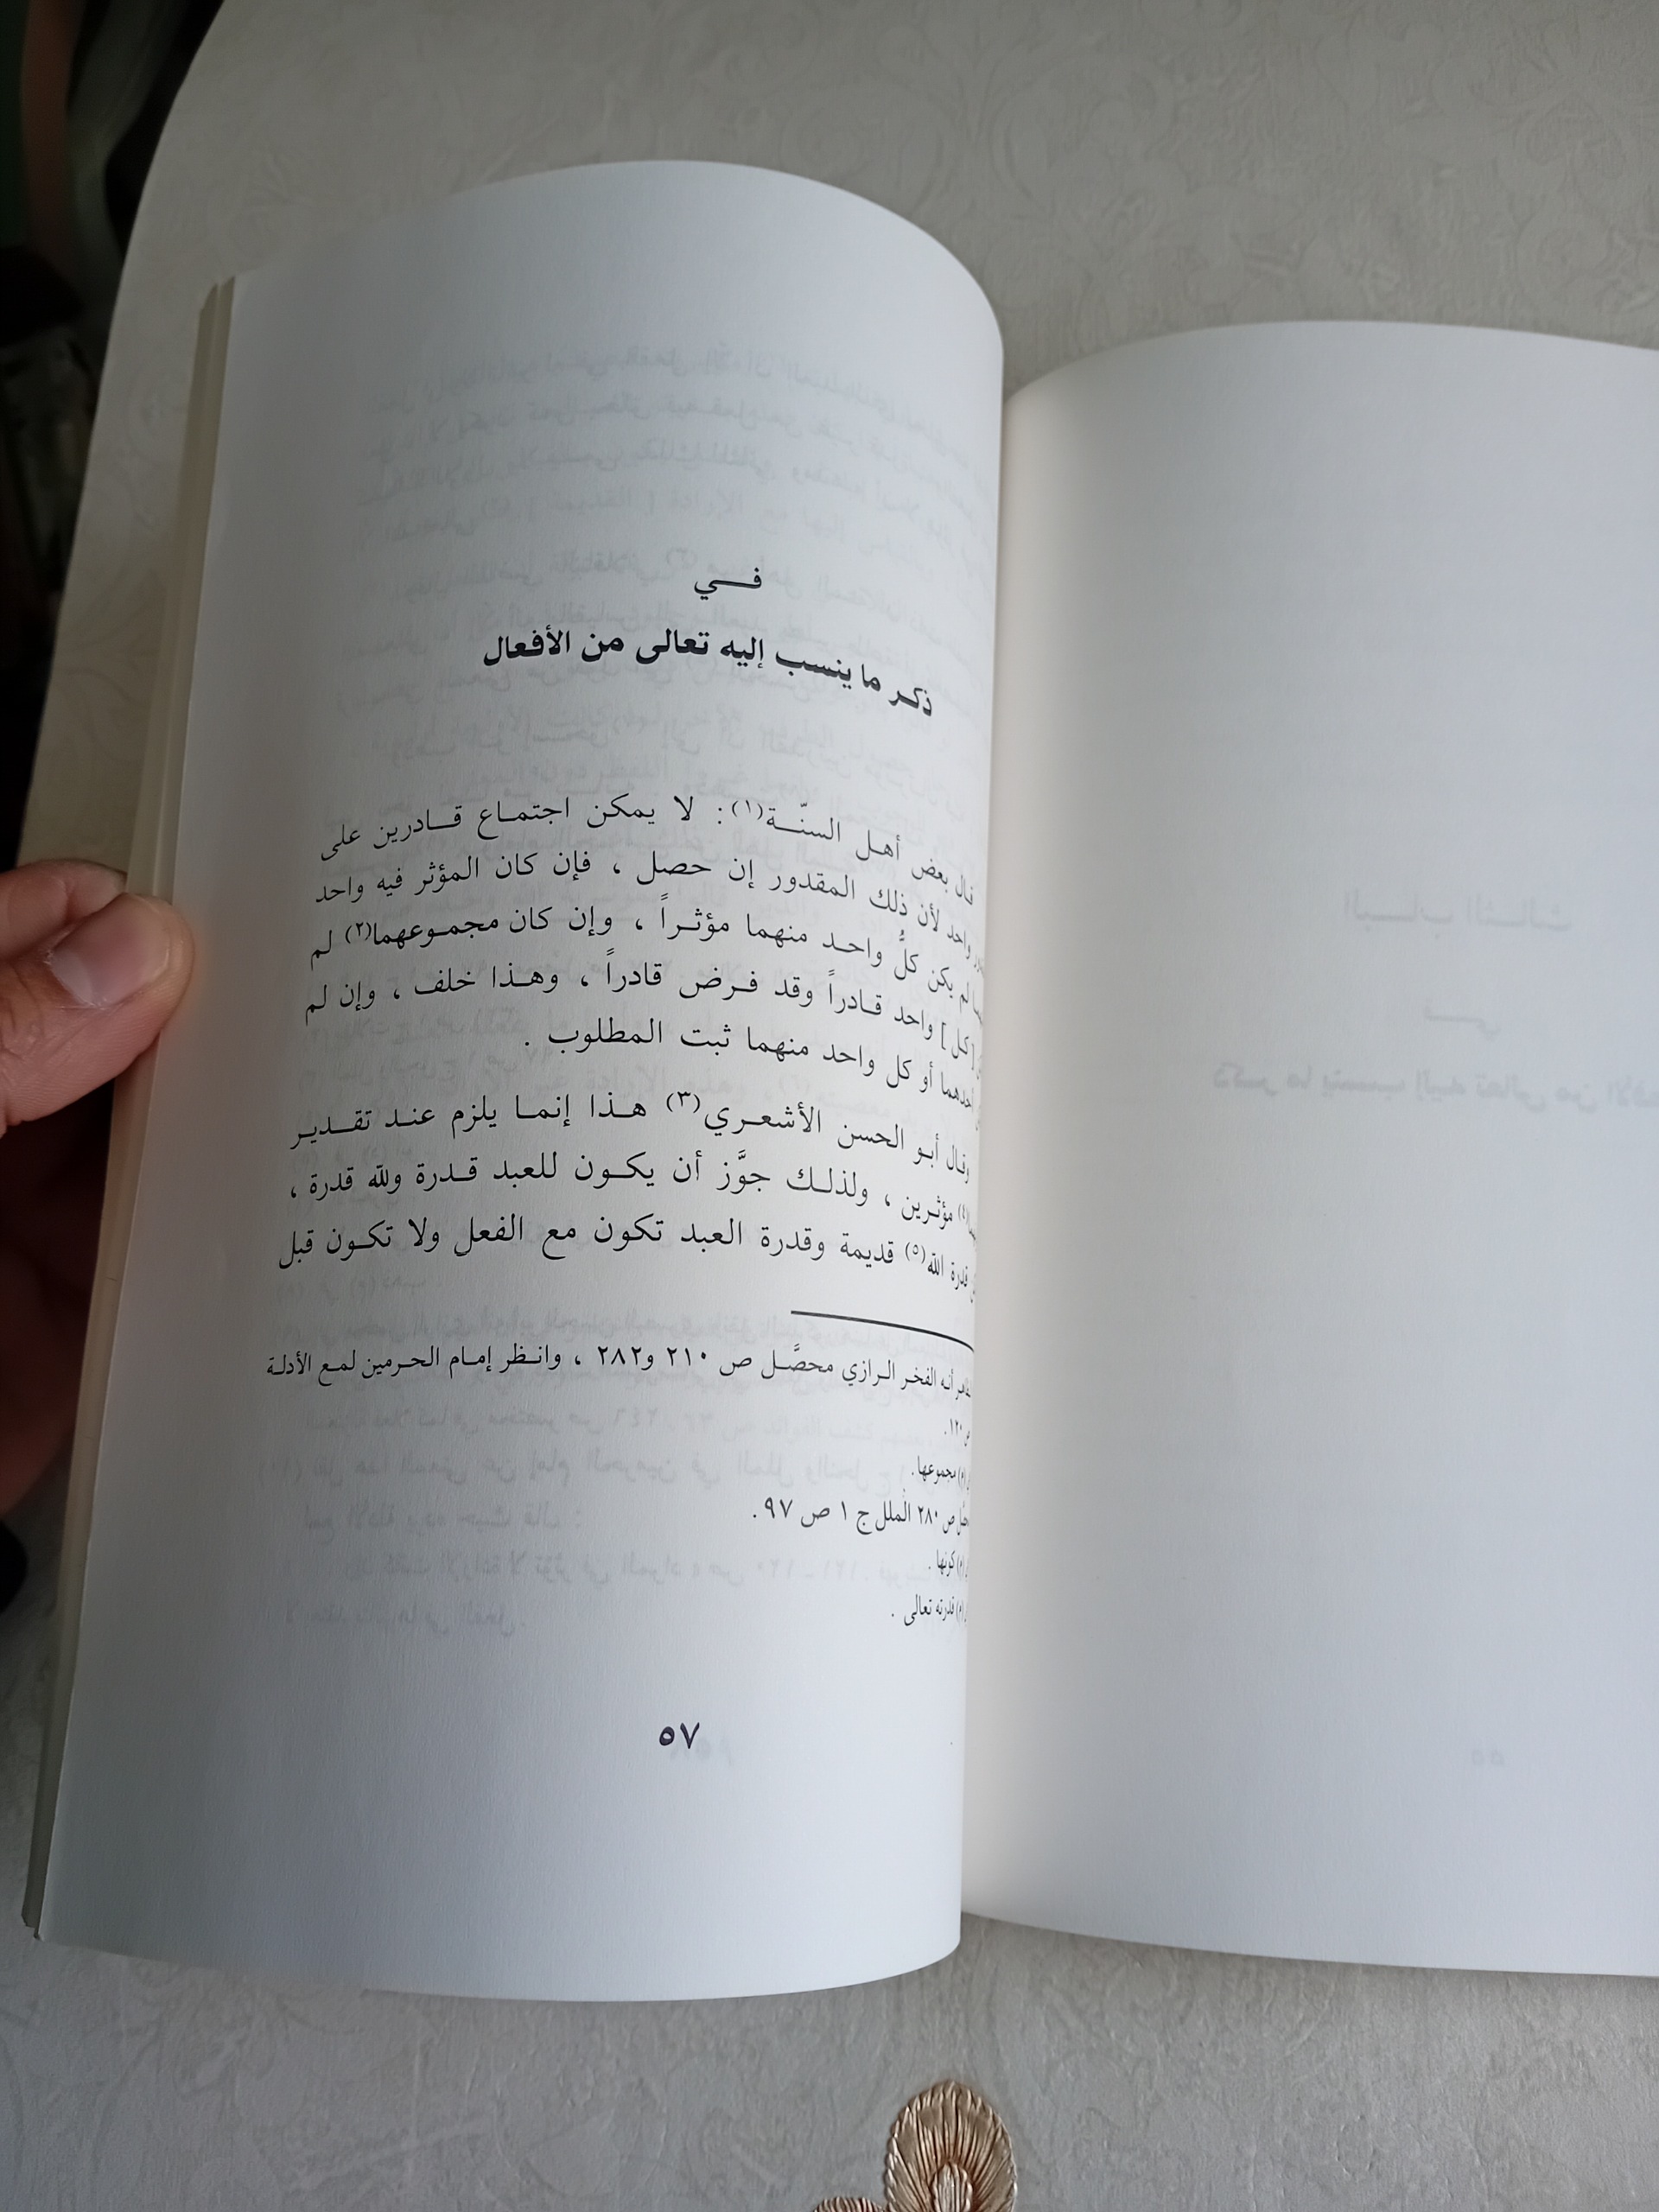 في
ذكر ما ينسب إليه تعالى من الأفعال
قال بعض أهل السنّة(١) : لا يمكن اجتماع قادرين على
واحد لأن ذلك المقدور إن حصل ، فإن كان المؤثر فيه واحد
لم يكن كلُّ واحد منهما مؤثراً ، وإن كان مجموعهما(٢) لم
[كل] واحد قادراً وقد فرض قادراً ، وهذا خلف ، وإن لم
أو كل واحد منهما ثبت المطلوب .
وقال أبو الحسن الأشعري(٣) هذا إنما يلزم عند تقدير
(٤) مؤثرين ، ولذلك جوَّز أن يكون للعبد قدرة ولله قدرة ،
قدرة الله(٥) قديمة وقدرة العبد تكون مع الفعل ولا تكون قبل
أنه الفخر الرازي محصَّل ص ٢١٠ و٢٨٢ ، وانظر إمام الحرمين لمع الأدلة
ص ١٢٠.
(م) مجموعها .
ص ٢٨٠ الملل ج ١ ص ٩٧ .
(م) كونها .
(م) قدرته تعالى .
٥٧